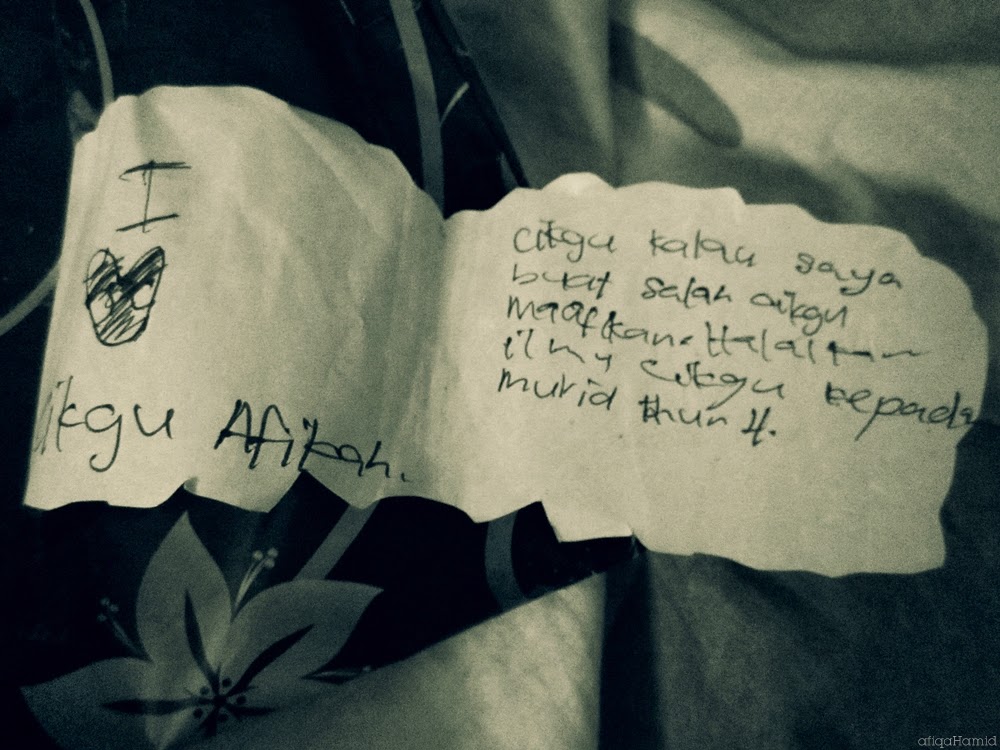 I
ikgu Afikah.
cikgu kalau saya
buat salah cikgu
maafkan. Halalkan
ilmu cikgu kepada
murid thun 4.
afiqaHamid